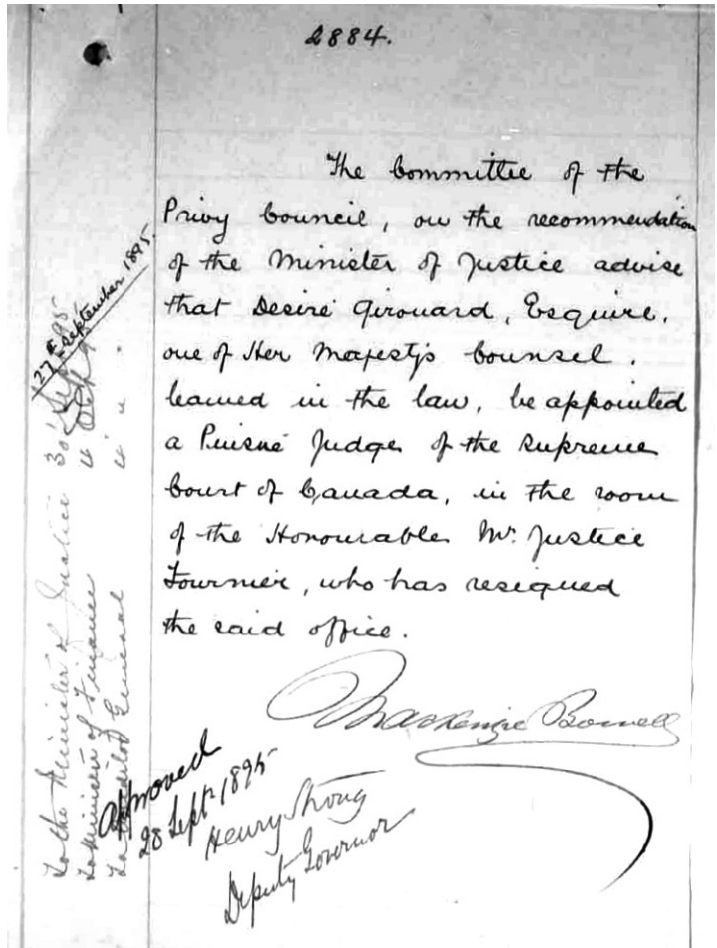 2884.
The Committee of the
Privy Council, on the recommendation
of the Minister of Justice advise
that Desiré Girouard, Esquire,
one of Her Majesty's Counsel,
learned in the law, be appointed
a Puisné Judge of the Supreme
Court of Canada, in the room
of the Honourable Mr. Justice
Fournier, who has resigned
the said office.
Mackenzie Bowell
Approved
28 Sept 1895
Henry Strong
Deputy Governor
27th September 1895.
To the Minister of Justice 30 Sept 95
To Minister of Finance "
To Auditor General " "